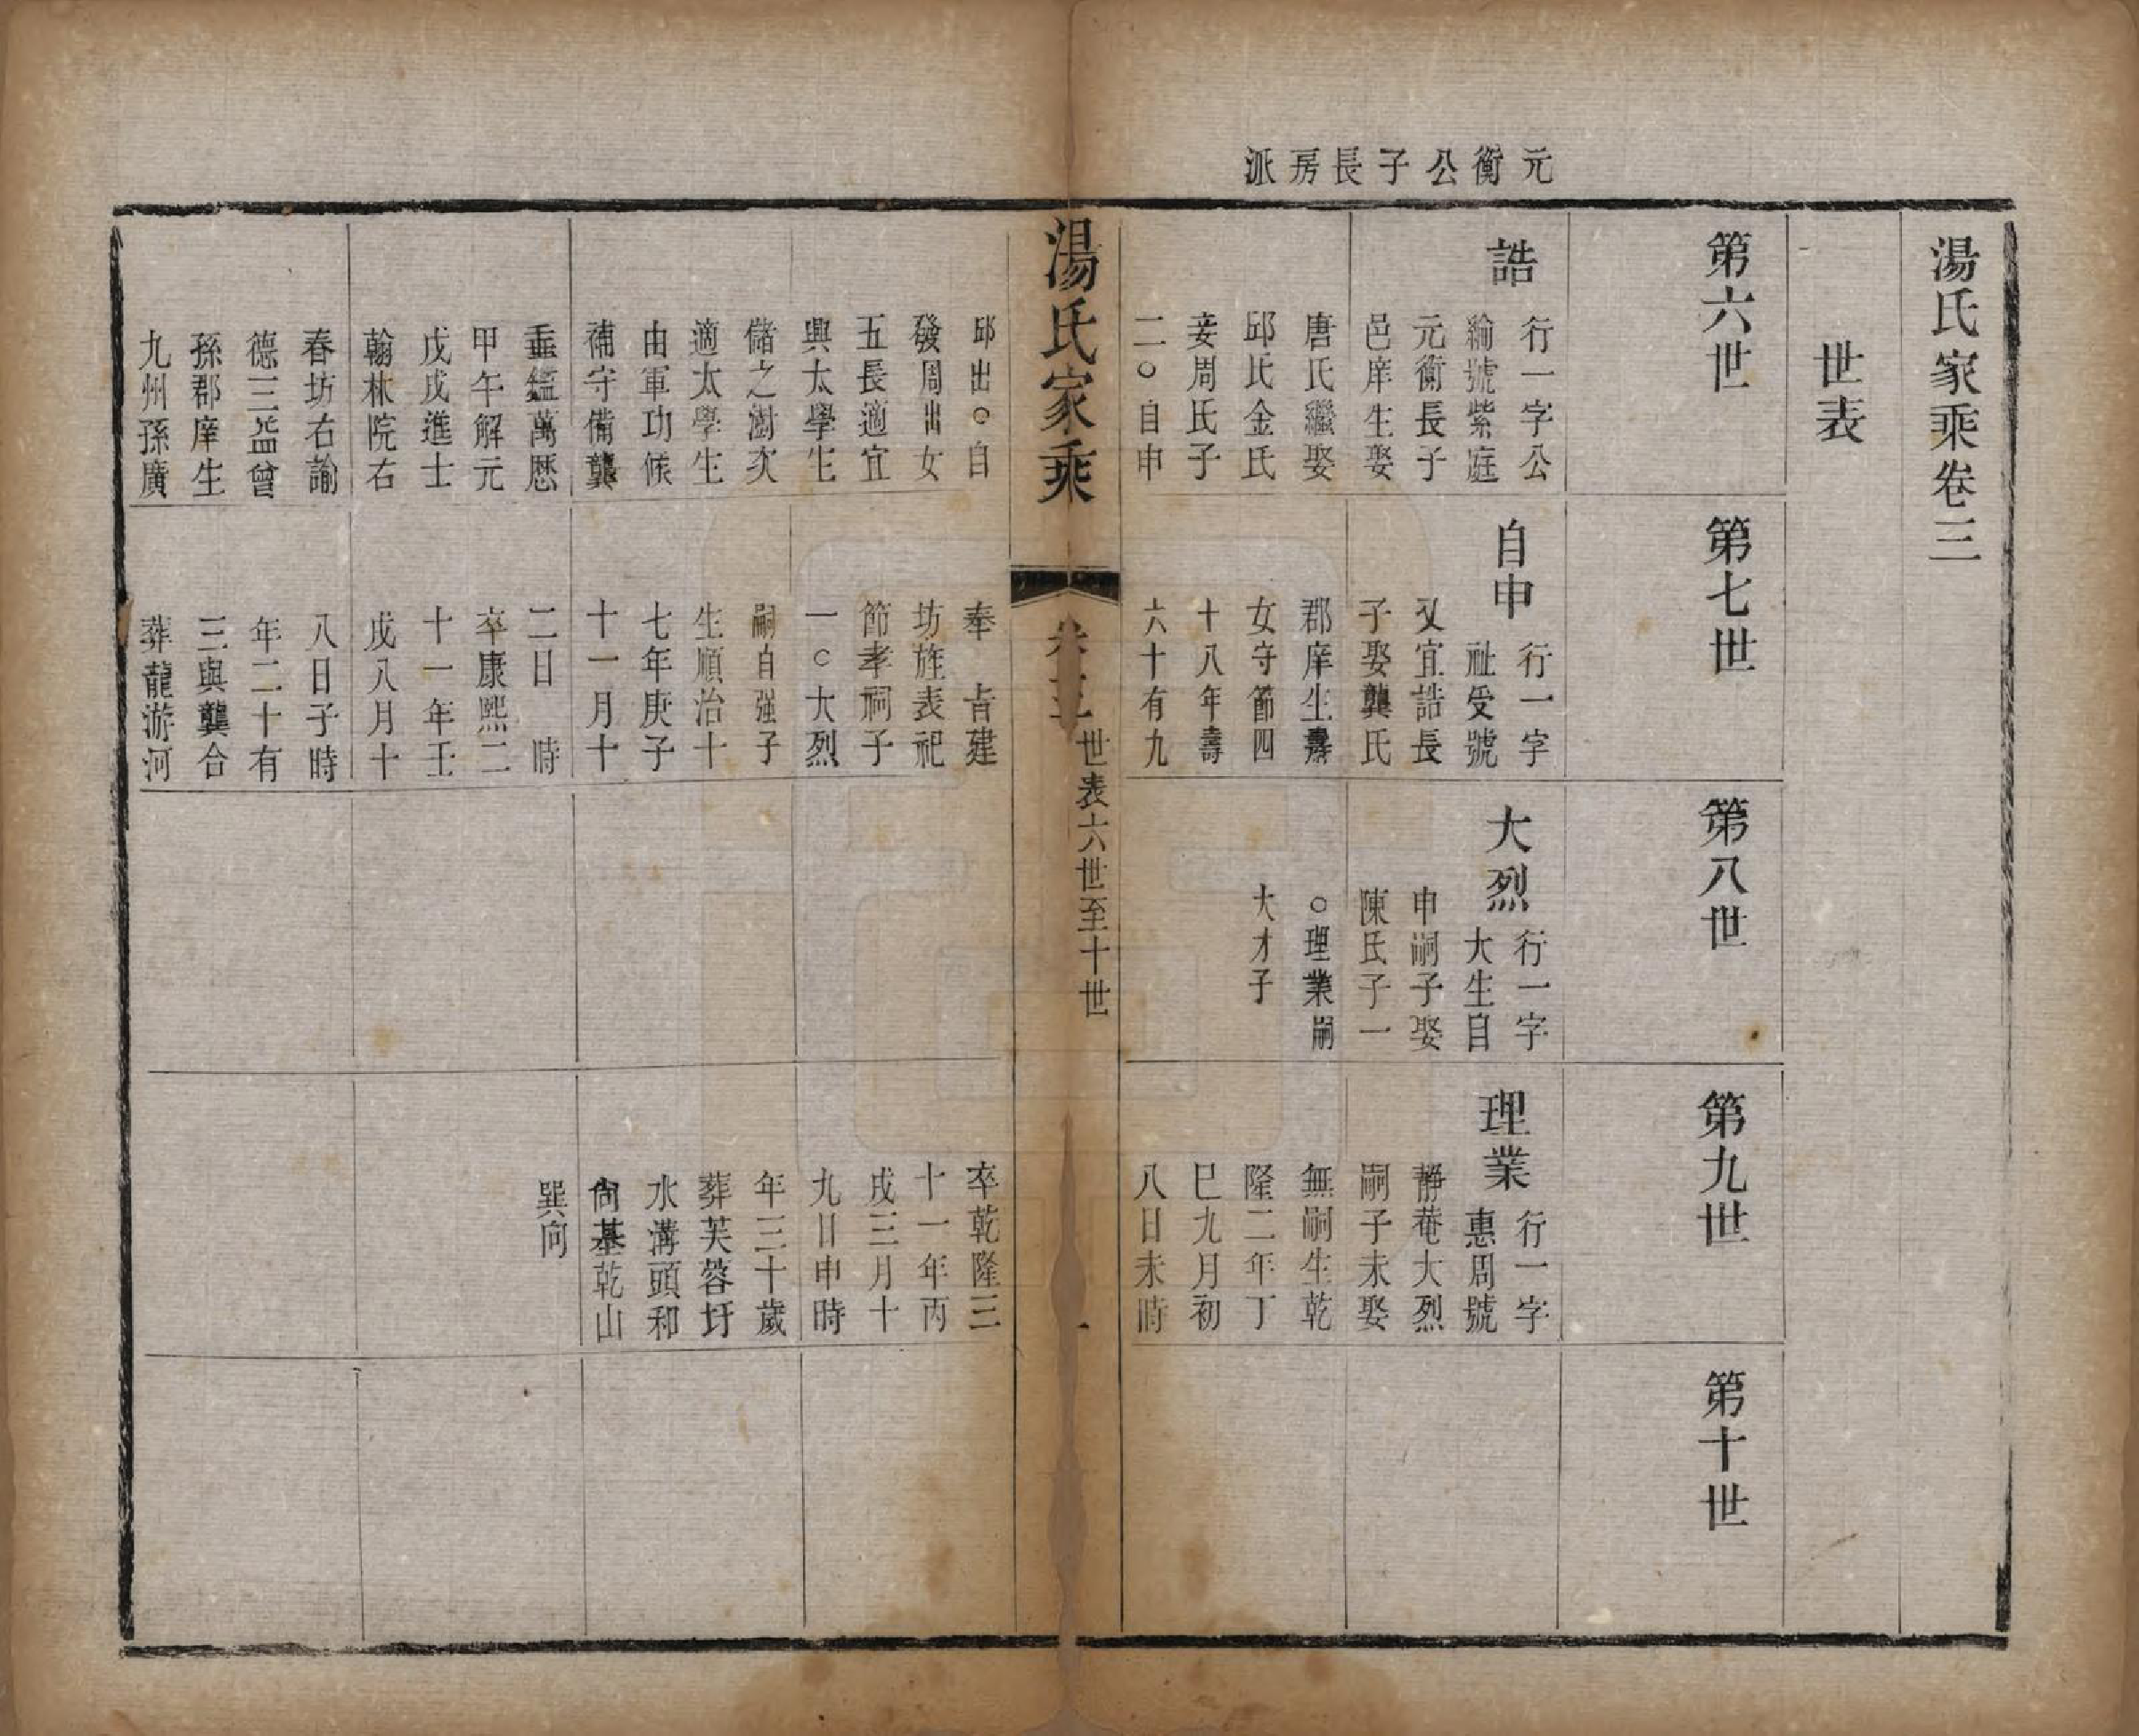 元衡公子長房派
湯氏家乘卷三
世表
第六世
第七世
第八世
第九世
第十世
誥
行一字公
綸號紫庭
元衡長子
邑庠生娶
唐氏繼娶
邱氏金氏
妾周氏子
二○自申
邱出○自
發周出女
五長適宜
興太學生
儲之澍次
適太學生
由軍功候
補守備龔
垂鑑萬歷
甲午解元
戊戌進士
翰林院右
春坊右諭
德三益曾
孫郡庠生
九州孫廣
自申
行一字
祉受號
又宜誥長
子娶龔氏
郡庠生壽
女守節四
十八年壽
六十有九
奉 旨建
坊旌表祀
節孝祠子
一○大烈
嗣自強子
生順治十
七年庚子
十一月十
二日 時
卒康熙二
十一年壬
戌八月十
八日子時
年二十有
三與龔合
葬龍游河
大烈
行一字
大生自
申嗣子娶
陳氏子一
○理業嗣
大才子
理業
行一字
惠周號
靜菴大烈
嗣子未娶
無嗣生乾
隆二年丁
巳九月初
八日未時
卒乾隆三
十一年丙
戌三月十
九日申時
年三十歲
葬芙蓉圩
水溝頭和
尙基乾山
巽向
湯氏家乘
卷三
世表六世至十世
一